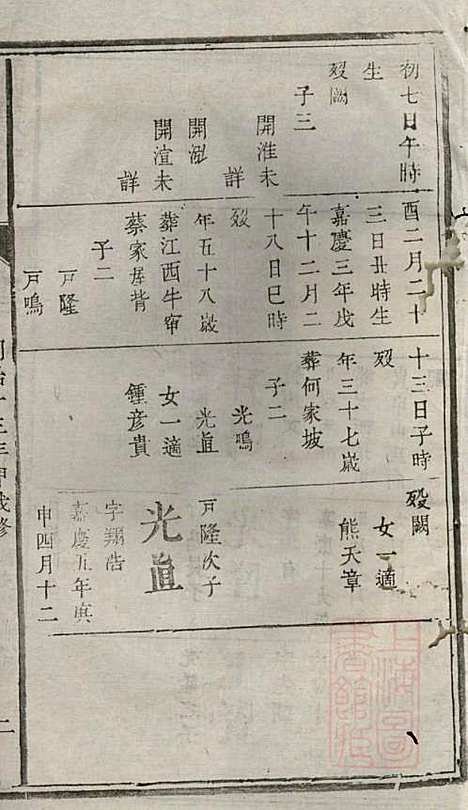 初七日午時
生
歿闕
子三
開淮未
詳
開泓
開渲未
詳
酉二月二十
三日丑時生
嘉慶三年戊
午十二月二
十八日巳時
歿
年五十八歲
葬江西牛窜
蔡家屋背
子二
戸隆
戸鳴
十三日子時
歿
年三十七歲
葬何家坡
子二
光鳴
光直
女一適
鍾彦貴
歿闕
女一適
熊天章
戸隆次子
光直
字翔浩
嘉慶五年庚
申四月十二
同治十三年甲戌修
二
上海圖
書館藏